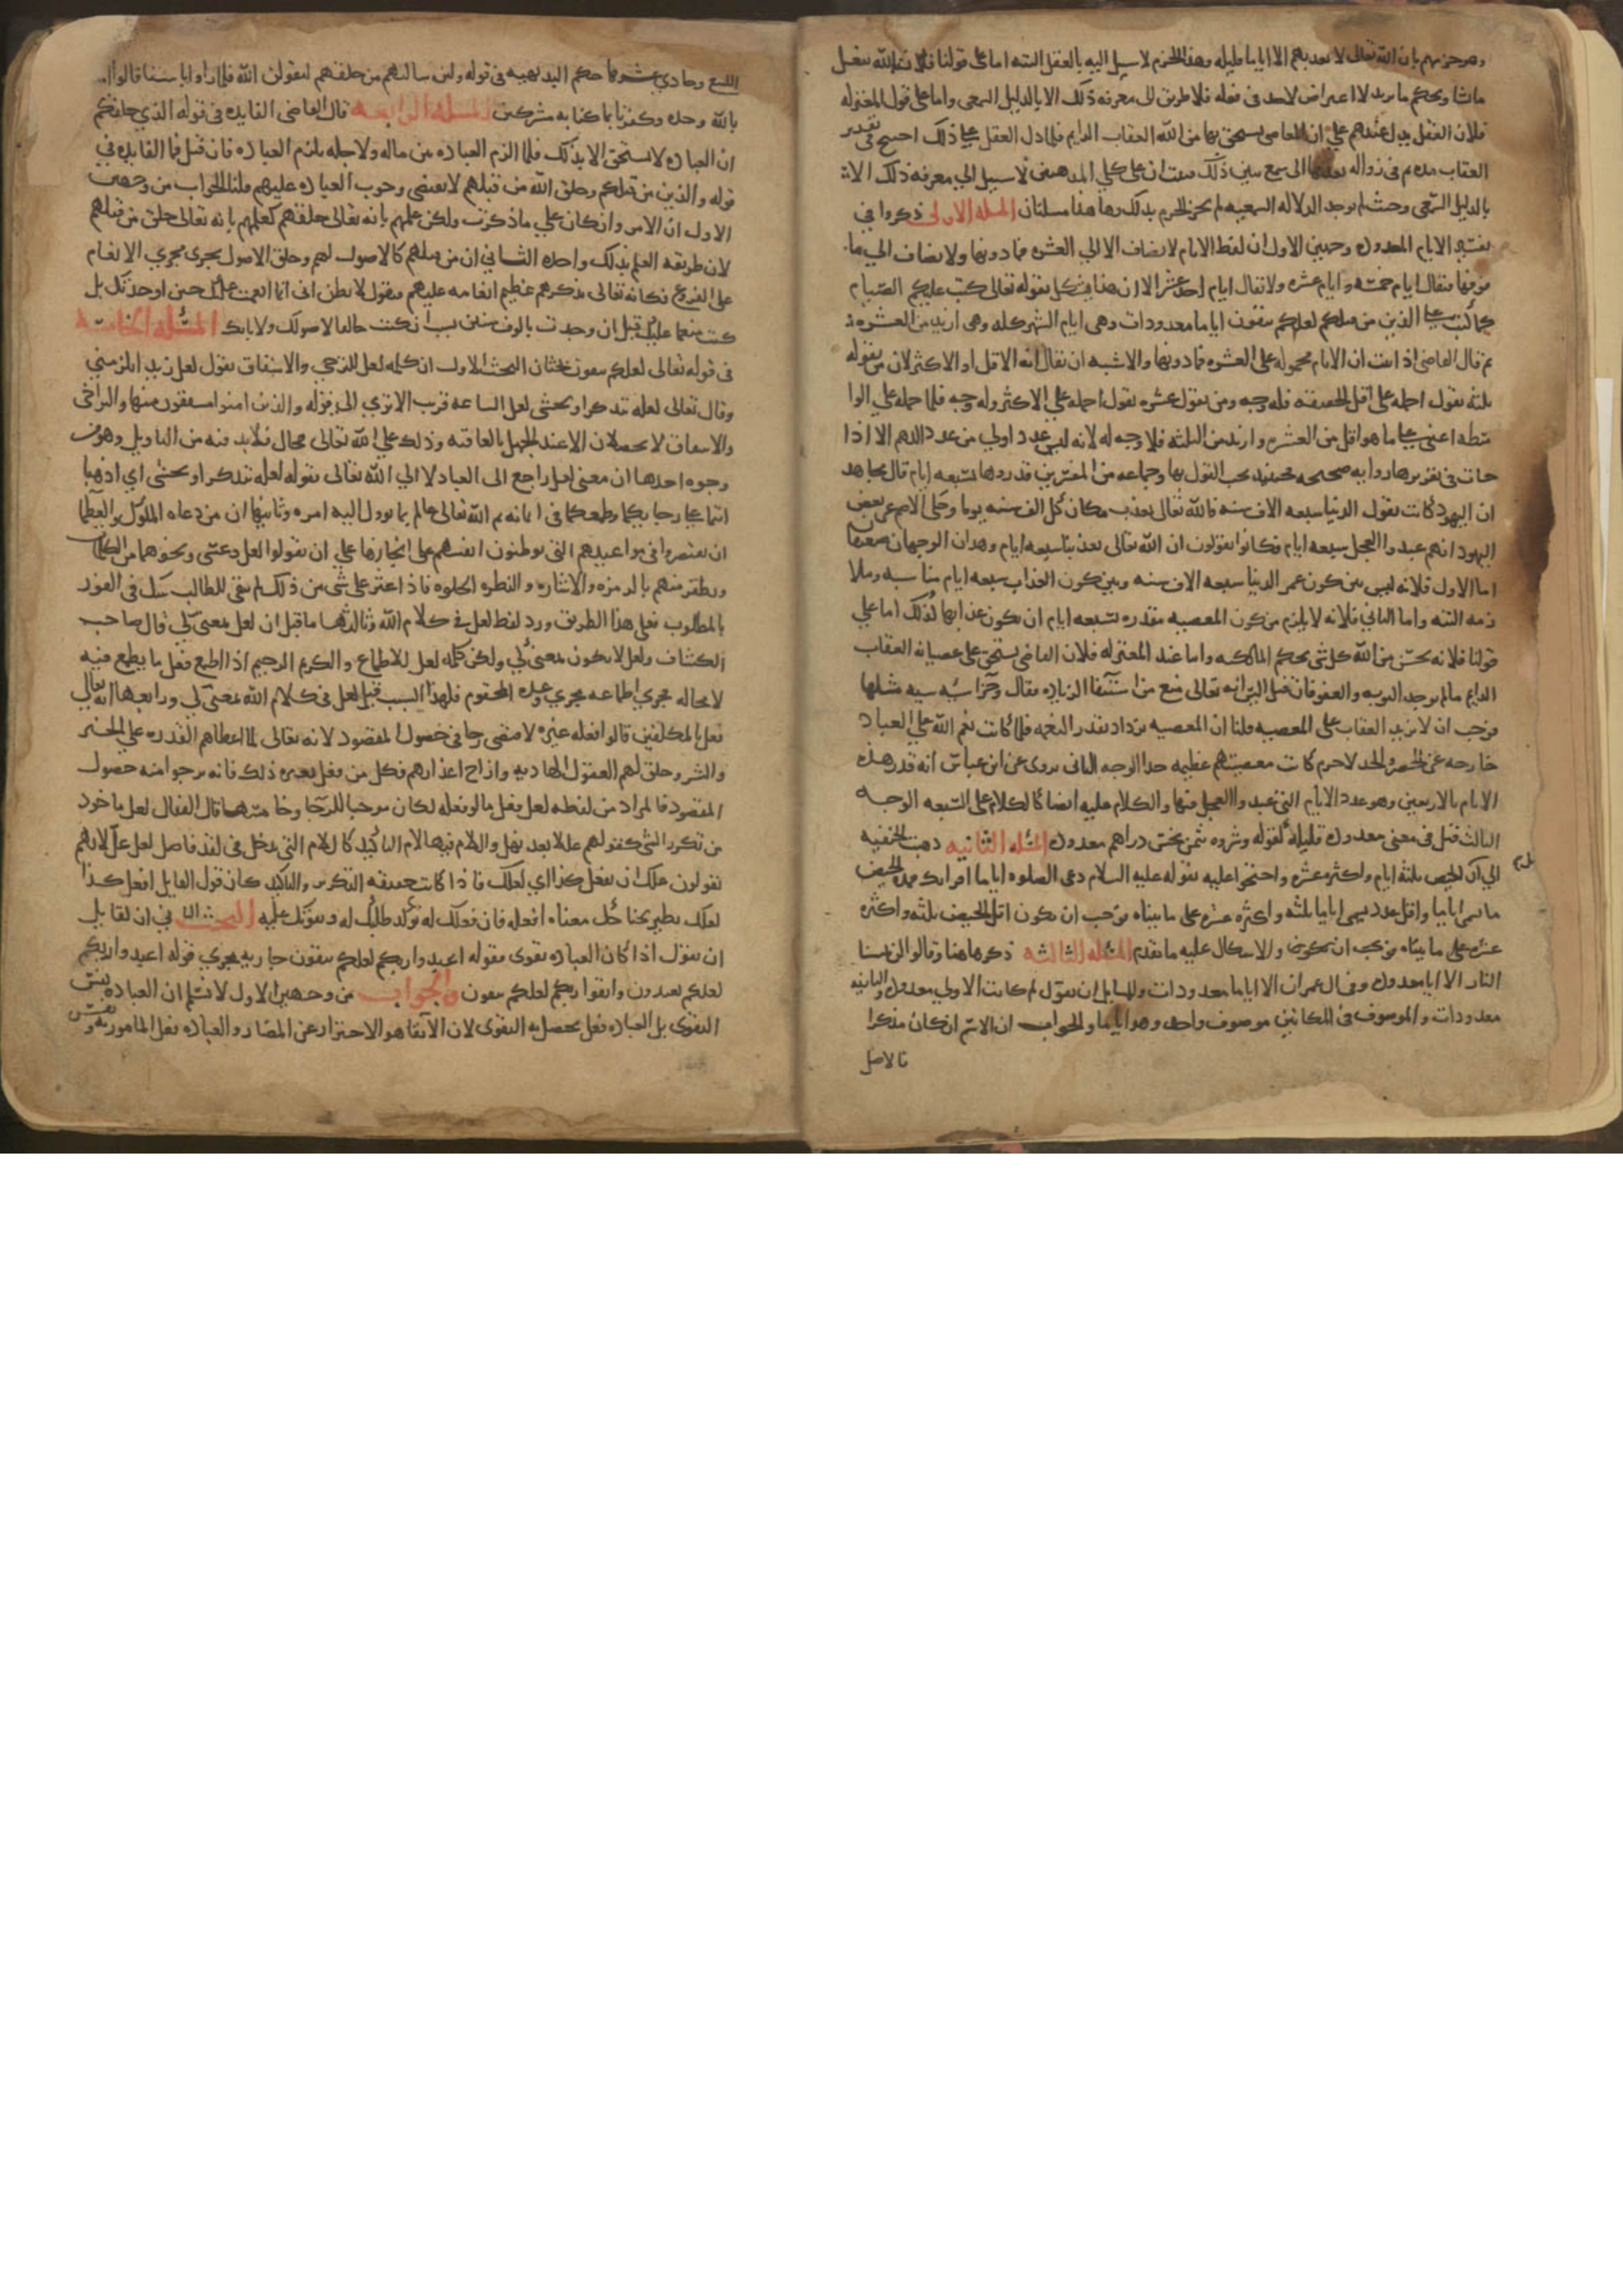 وهو جزمهم بان الله تعالى لا يعذبهم الا اياما قليله وهذا الجزم لا سبيل اليه بالعقل البته اما على قولنا فلان الله يفعل
ما يشا ويحكم ما يريد لا اعتراض لاحد في فعله فلا طريق الى معرفه ذلك الا بالدليل السمعي واما على قول المعتزله
فلان العقل يدل عندهم على ان المعاصي يستحق بها من الله العقاب الدايم فلما دل العقل على ذلك احتيج في تقدير
العقاب مده ثم في زواله بعدها الى سمع يبين ذلك فثبت ان على كلي المذهبين لا سبيل الى معرفه ذلك الا
بالدليل السمعي وحيث لم توجد الدلاله السمعيه لم يجز الجزم بذلك وها هنا مسلتان المسله الاولى ذكروا في
تفسير الايام المعدوده وجهين الاول ان لفظ الايام لا يضاف الا الى العشره فما دونها ولا يضاف الى ما
فوقها فيقال ايام خمسه وايام عشره ولا يقال ايام احد عشر الا ان هذا يشكل بقوله تعالى كتب عليكم الصيام
كما كتب على الذين من قبلكم لعلكم تتقون اياما معدودات وهي ايام الشهر كله وهي ازيد من العشره
ثم قال القاضي اذا ثبت ان الايام محموله على العشره فما دونها والاشبه ان يقال انه الاقل او الاكثر لان من يقول
ثلثه يقول احمله على اقل الحقيقه فله وجه ومن يقول عشره يقول احمله على الاكثر وله وجه فاما حمله على الوا
سطه اعني على ما هو اقل من العشره وازيد من الثلثه فلا وجه له لانه ليس عدد اولى من عدد اللهم الا اذا
جات في تقديرها روايه صحيحه فحينيذ يجب القول بها وجماعه من المفسرين قدروها بسبعه ايام قال مجاهد
ان اليهود كانت تقول الدنيا سبعه الاف سنه فالله تعالى يعذب مكان كل الف سنه يوما وحكى الاصم عن بعض
اليهود انهم عبدوا العجل سبعه ايام فكانوا يقولون ان الله تعالى يعذبنا سبعه ايام وهذان الوجهان ضعيفان
اما الاول فلانه ليس بين كون عمر الدنيا سبعه الاف سنه وبين كون العذاب سبعه ايام مناسبه وملا
زمه البته واما الثاني فلانه لا يلزم من كون المعصيه مقدره بسبعه ايام ان يكون عذابها كذلك اما على
قولنا فلانه يحسن من الله كل شي بحكم المالكيه واما عند المعتزله فلان العاصي يستحق على عصيانه العقاب
الدايم ما لم توجد التوبه والعفو فان قيل اليس انه تعالى منع من استيفا الزياده فقال وجزاء سيئه سيئه مثلها
فوجب ان لا يزيد العقاب على المعصيه قلنا ان المعصيه تزداد بقدر النعمه فلما كانت نعم الله على العباد
خارجه عن الحصر والحد لا جرم كانت معصيتهم عظيمه جدا الوجه الثاني يروى عن ابن عباس انه قدر هذه
الايام بالاربعين وهو عدد الايام التي عبدوا العجل فيها والكلام عليه ايضا كالكلام على السبعه الوجه
الثالث قيل في معنى معدوده قليله كقوله وشروه بثمن بخس دراهم معدوده المسله الثانيه ذهبت الحنفيه
الى ان اقل الحيض ثلثه ايام واكثره عشره واحتجوا عليه بقوله عليه السلام دعي الصلوه اياما اقرائك فمده الحيض
ما يسمى اياما واقل عدد يسمى اياما ثلثه واكثره عشره على ما بيناه فوجب ان يكون اقل الحيض ثلثه واكثره
عشره على ما بيناه فوجب ان يكون والاشكال عليه ما تقدم المسله الثالثه ذكر هاهنا وقالوا لن تمسنا
النار الا اياما معدوده وفي ال عمران الا اياما معدودات ولقايل ان يقول لم كانت الاولى معدوده والثانيه
معدودات والموصوف في المكانين موصوف واحد وهو اياما والجواب ان الاسم ان كان مذكرا
فالاصل
التسع وحادي عشرها حكم البديهيه في قوله ولين سالتهم من خلقهم ليقولن الله فلما راوا باسنا قالوا امنا
بالله وحده وكفرنا بما كنا به مشركين المسله الرابعه قال القاضي الفايده في قوله الذي خلقكم
ان العباده لا تستحق الا بذلك فلما الزم العباده بين ما له ولاجله تلزم العباده فان قيل فما الفايده في
قوله والذين من قبلكم وخلق الله من قبلهم لا يقتضي وجوب العباده عليهم قلنا الجواب من وجهين
الاول ان الامر وان كان على ما ذكرت ولكن علمهم بانه تعالى خلقهم كعلمهم بانه تعالى خلق من قبلهم
لان طريقه العلم بذلك واحده الثاني ان من قبلهم كالاصول لهم وخلق الاصول يجري مجرى الانعام
على الفروع فكانه تعالى يذكرهم عظيم انعامه عليهم فيقول لا تظن اني انما انعمت عليك حين اوجدتك بل
كنت منعما عليك قبل ان وجدت بالوف سنين بسبب ان كنت خالقا لاصولك ولابايك المسله الخامسه
في قوله تعالى لعلكم تتقون بحثان البحث الاول ان كلمه لعل للترجي والاشفاق تقول لعل زيدا يكرمني
وقال تعالى لعله يتذكر او يخشى لعل الساعه قريب الا ترى الى قوله والذين امنوا مشفقون منها والترجي
والاشفاق لا يحصلان الا عند الجهل بالعاقبه وذلك على الله تعالى محال فلا بد فيه من التاويل وهو من
وجوه احدها ان معنى لعل راجع الى العباد لا الى الله تعالى فقوله لعله يتذكر او يخشى اي اذهبا
انتما على رجايكما وطمعكما في ايمانه ثم الله تعالى عالم بما يوول اليه امره وثانيها ان من عاده الملوك والعظما
ان يقتصروا في مواعيدهم التي يوطنون انفسهم على انجازها على ان يقولوا لعل وعسى ونحوهما من الكلمات
ويظفر منهم بالرمزه والاشاره والنظره الحلوه فاذا عثر على شي من ذلك لم يبق للطالب شك في الفوز
بالمطلوب فعلى هذا الطريق ورد لفظ لعل في كلام الله وثالثها ما قيل ان لعل بمعنى كي قال صاحب
الكشاف ولعل لا يكون بمعنى كي ولكن كلمه لعل للاطماع والكريم الرحيم اذا اطمع فعل ما يطمع فيه
لا محاله فجرى اطماعه مجرى وعده المحتوم فلهذا السبب قيل لعل في كلام الله بمعنى كي ورابعها انه تعالى
فعل بالمكلفين ما لو فعله غيره لاقتضى رجا في حصول المقصود لانه تعالى لما اعطاهم القدره على الخير
والشر وخلق لهم العقول الهاديه وازاح اعذارهم فكل من فعل بغيره ذلك فانه يرجوا منه حصول
المقصود فالمراد من لفظه لعل فعل ما لو فعله لكان موجبا للرجا وخامسها قال القفال لعل ماخوذ
من تكرر الشي كقولهم عللا بعد نهل واللام فيها لام التاكيد كاللام التي تدخل في لقد فاصل لعل عل لانهم
يقولون علك ان تفعل كذا اي لعلك فاذا كانت حقيقته التكرير والتاكيد كان قول القايل افعل كذا
لعلك تظفر بحاجتك معناه افعله فان فعلك له يوكد طلبك له ويقويك عليه البحث الثاني في ان لقايل
ان يقول اذا كان العباده تقوى فقوله اعبدوا ربكم لعلكم تتقون جار مجرى قوله اعبدوا ربكم
لعلكم تعبدون واتقوا ربكم لعلكم تتقون والجواب من وجهين الاول لا نسلم ان العباده نفس
التقوى بل العباده فعل يحصل به التقوى لان الاتقا هو الاحتراز عن المضار والعباده فعل المامور به ونفس